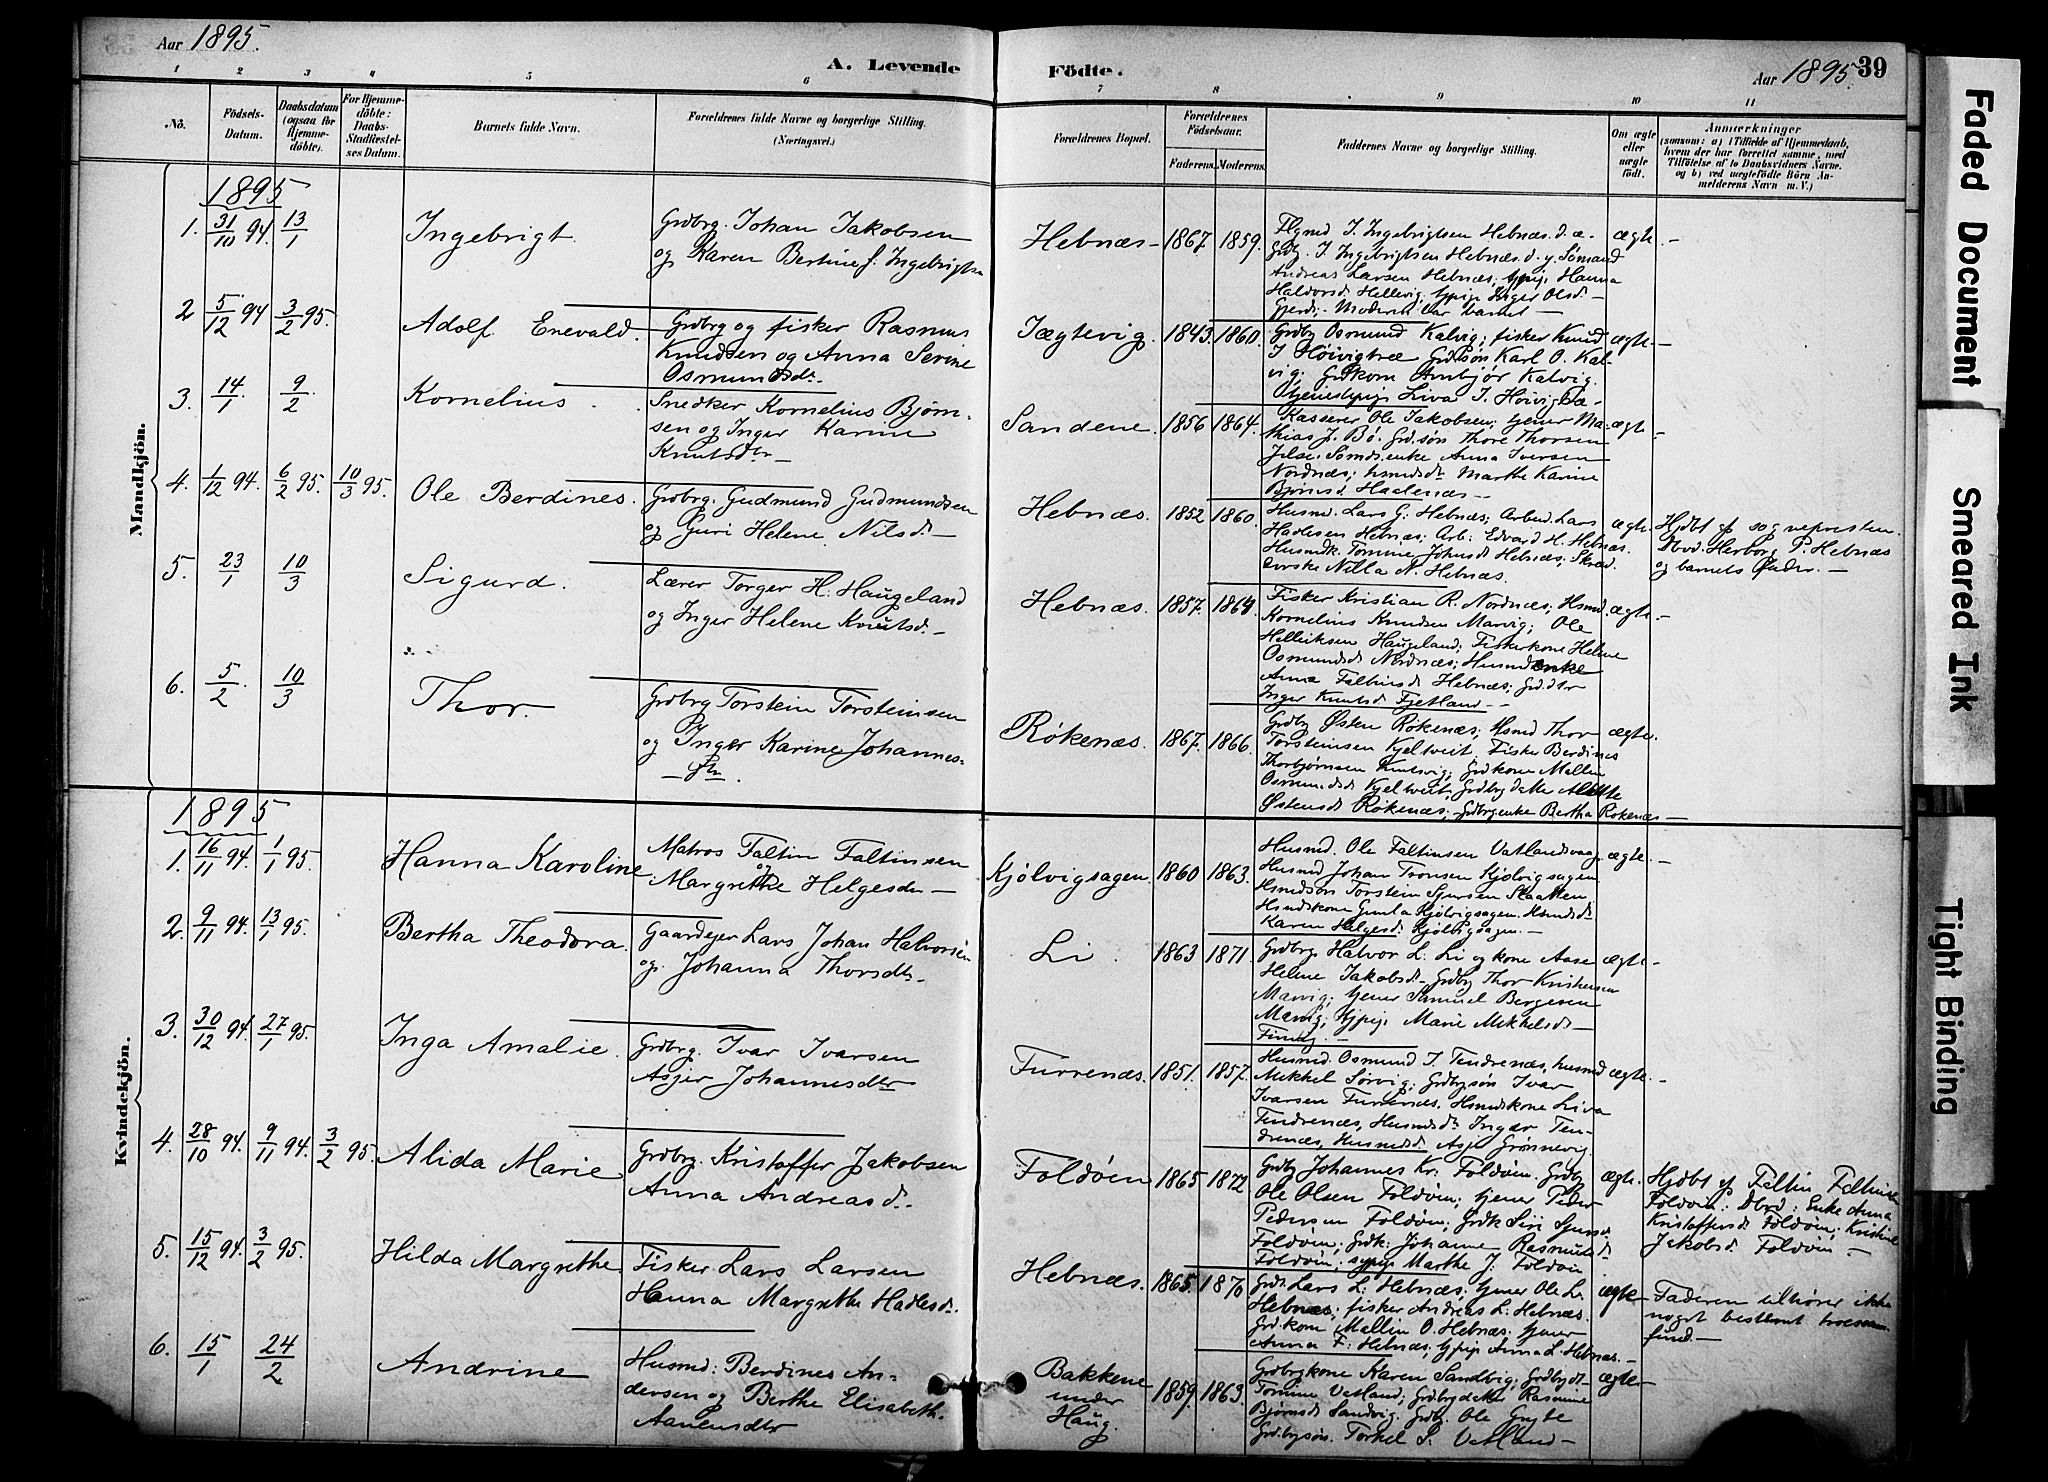 Aar 1895.
A. Levende
Födte.
Aar 1895. 39
1 2 3 4 5 6 7 8 9 10 11
No.
Födsels-Datum.
Daabsdatum (ogsaa for Hjemmedöbte).
For Hjemmedöbte: Daabs-Stadfæstelses Datum.
Barnets fulde Navn.
Forældrenes fulde Navne og borgerlige Stilling. (Næringsvei.)
Forældrenes Bopæl.
Forældrenes Födselsaar.
Faderens. Moderens.
Faddernes Navne og borgerlige Stilling.
Om ægte eller uægte födt.
Anmærkninger
(saasom: a) i Tilfælde af Hjemmedaab, hvem der har forrettet samme, med Tilföielse af to Daabsvidners Navne. og b) ved uægtefödte Börn Anmelderens Navn m. V.)
Mandkjön.
1895
1. 31/10 94. 13/1 Ingebrigt.
Grdbrg. Johan Jakobsen
og Karen Bertine J. Ingebrigts
Hebnæs- 1867. 1859.
Flgmd I. Ingebrigtsen Hebnæs d. æ.
Grdbg. I. Ingebrigtsen Hebnæs d. y. Sømand
Andreas Larsen Hebnæs; tjpig. Hanna
Haldorsd. Hellevig; tjpige Inger Olsd.
Gjerde. Moderen bar barnet
ægte.
2 5/12 94 3/2 95. Adolf Enevald.
Grdbrg og fisker Rasmus
Knudsen og Anna Serine
Osmundsdr.
Jægtevig. 1843. 1860.
Grdbg Osmund Kalvig; fisker Knud
I Høivigtræ Grd.søn Karl O. Kalvig;
Grdkone Anbjør Kalvig.
Tjenestepig Liva I. Høivigtræ
ægte.
3. 14/1 9/2 Kornelius.
Snedker Kornelius Bjørnsen
og Inger Karine
Knutsdr
Sandene. 1856 1864.
Kasserer Ole Jakobsen; tjener Mathias
J. Bø. Grd.søn Thore Thorsen
Jelse; Sømds.enke Anna Iversen
Nordnæs; husmdsd. Marthe Karine
Bjørnsd. Haalenæs
ægte.
4. 1/12 94. 6/2 95. 10/3 95. Ole Berdines.
Grdbrg. Gudmund Gudmundsen
og Guri Helene Nilsd.
Hebnæs. 1852 1860.
Husmd. Lars G. Hebnæs; Arbeid. Lars
Hadlesen Hebnæs; Arb. Edvard H. Hebnæs.
Husmdk. Tomine Johnsd. Hebnæs;
Nilla N. Hebnæs.
ægte.
Hjdbt af sognepresten.
Dbvd. Herborg P. Hebnæs
og barnets Fader.
5. 23/1 10/3 Sigurd.
Lærer Torger H. Haugeland
og Inger Helene Knutsd.
Hebnæs. 1857. 1864.
Fisker Kristian R. Nordnæs; Hsmd.
Kornelius Knudsen Marvig; Ole
Helliksen Haugeland; Fiskerkone Helene
Osmundsd. Nordnæs; Husmdsenke
Anna Faltinsd. Hebnæs; Grd.dtr
Inger Knutsd Fjetland
ægte.
6. 5/2 10/3 Thor.
Grdbrg Torstein Torsteinsen
og Inger Karine Johannes-
dtr.
Røkenæs. 1867. 1866.
Grdbg Østen Røkenæs; Hsmd Thor
Torsteinsen Kjeltveit, Fisker Berdines
Thorbjørnsen; Grdkone Mallin
Osmundsd. Kjeltveit; Grdbrgdatter Alette
Østensd. Røkenæs; Grdbrgenke Bertha Røkenæs
ægte.
Kvindekjön.
1895
1. 16/11 94. 1/1 95. Hanna Karoline
Matros Faltin Faltinsen
og
Margrethe Helgesdr
Kjølvigsagen. 1860 1863.
Husmd. Ole Faltinsen Vatlandsvaag
Husmd Johan Tronsen Kjølvigsagen
Hsmdsøn Torstein Sjursen Slaatten
Hsmdskone Gunla Kjølvigsagen. Hsmdsd.
Karen Helgesd. Kjølvigsagen.
ægte.
2. 9/11 94. 13/1 95. Bertha Theodora.
Gaardejer Lars Johan Halvorsen
og Johanna Thorsdtr.
Li. 1863 1871.
Grdbrg. Halvor L. Li og kone Aase
Helene Jakobsd. Grdbg Thor Kristensen
Marvig; tjener Samuel Bergesen
Marvig; tjpige Marie Mikkelsd.
Finnøy.
ægte
3. 30/12 94. 27/1 95. Inga Amalie.
Grdbrg. Ivar Ivarsen
Asjer Johannesdtr
Furrenæs. 1851. 1857.
Husmd. Osmund I. Tendrenæs, husmd
Mikkel Sørvig; Grdbgsøn Ivar
Ivarsen Furrenæs. Hsmdskone Liva
Tendrenæs, Husmdsd. Inger Tendrenæs,
Husmdsd. Asje Grønnevig.
ægte.
4. 28/10 94. 9/11 94. 3/2 95. Alida Marie
Grdbrg. Kristoffer Jakobsen
Anna Andreasd.
Foldøen 1865 1872
Grdbg Johannes Kr. Foldøen. Grdbg
Ole Olsen Foldøen; tjener Peder
Pedersen Foldøen; Grdk Siri Sjursd.
Foldøen; Grdk. Johanne Rasmusd.
Foldøen; sypige Marthe J. Foldøen
ægte.
Hjdbt af Faltin Faltinsen
Foldøen: Dbvd: Enke Anna
Kristoffersd. Foldøen; Kristine
Jakobsd. Foldøen
5. 15/12 94. 3/2 95. Hilda Margrethe.
Fisker Lars Larsen
Hanna Margrethe Hadlesd.
Hebnæs. 1865. 1870
Grdb. Lars L. Hebnæs; tjener Ole L.
Hebnæs; fisker Andreas L. Hebnæs.
Grd.kone Mallin O. Hebnæs. tjener
Anna F. Hebnæs, tjpige Anna L. Hebnæs.
ægte
Faderen tilhører ikke
noget bestemt troessam-
fund.
6. 15/1 24/2 Andrine
Husmd: Berdines An-
dersen og Berthe Elisabeth
Aanensdtr
Bakkene
under
Haug. 1859. 1863.
Grdbrgkone Karen Sandvig; Grdbgdtr
Tomine Vatland; Grdbrgdatter Rasmine
Bjørnsd Sandvig. Grdbg. Ole Gryte
Grdbgsøn. Torkel S. Vatland
ægte
Faded Document
Smeared Ink
Tight Binding